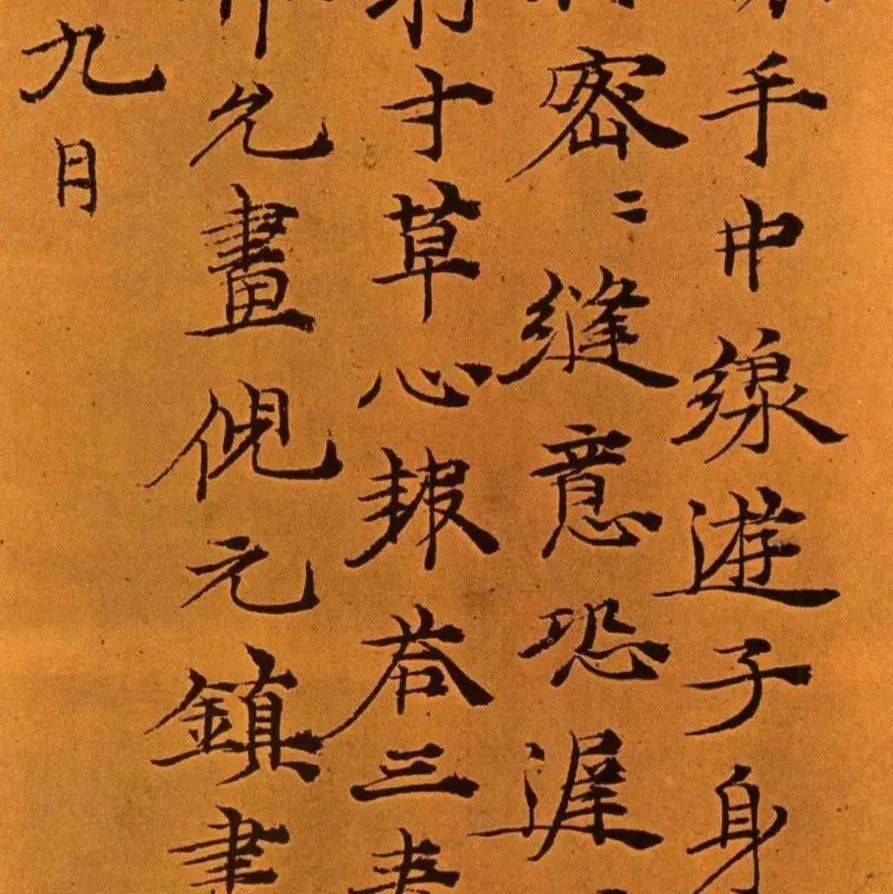 手中線遊子身
密〻縫意恐遲
寸草心報荅三春
允畫倪元鎮書
九日